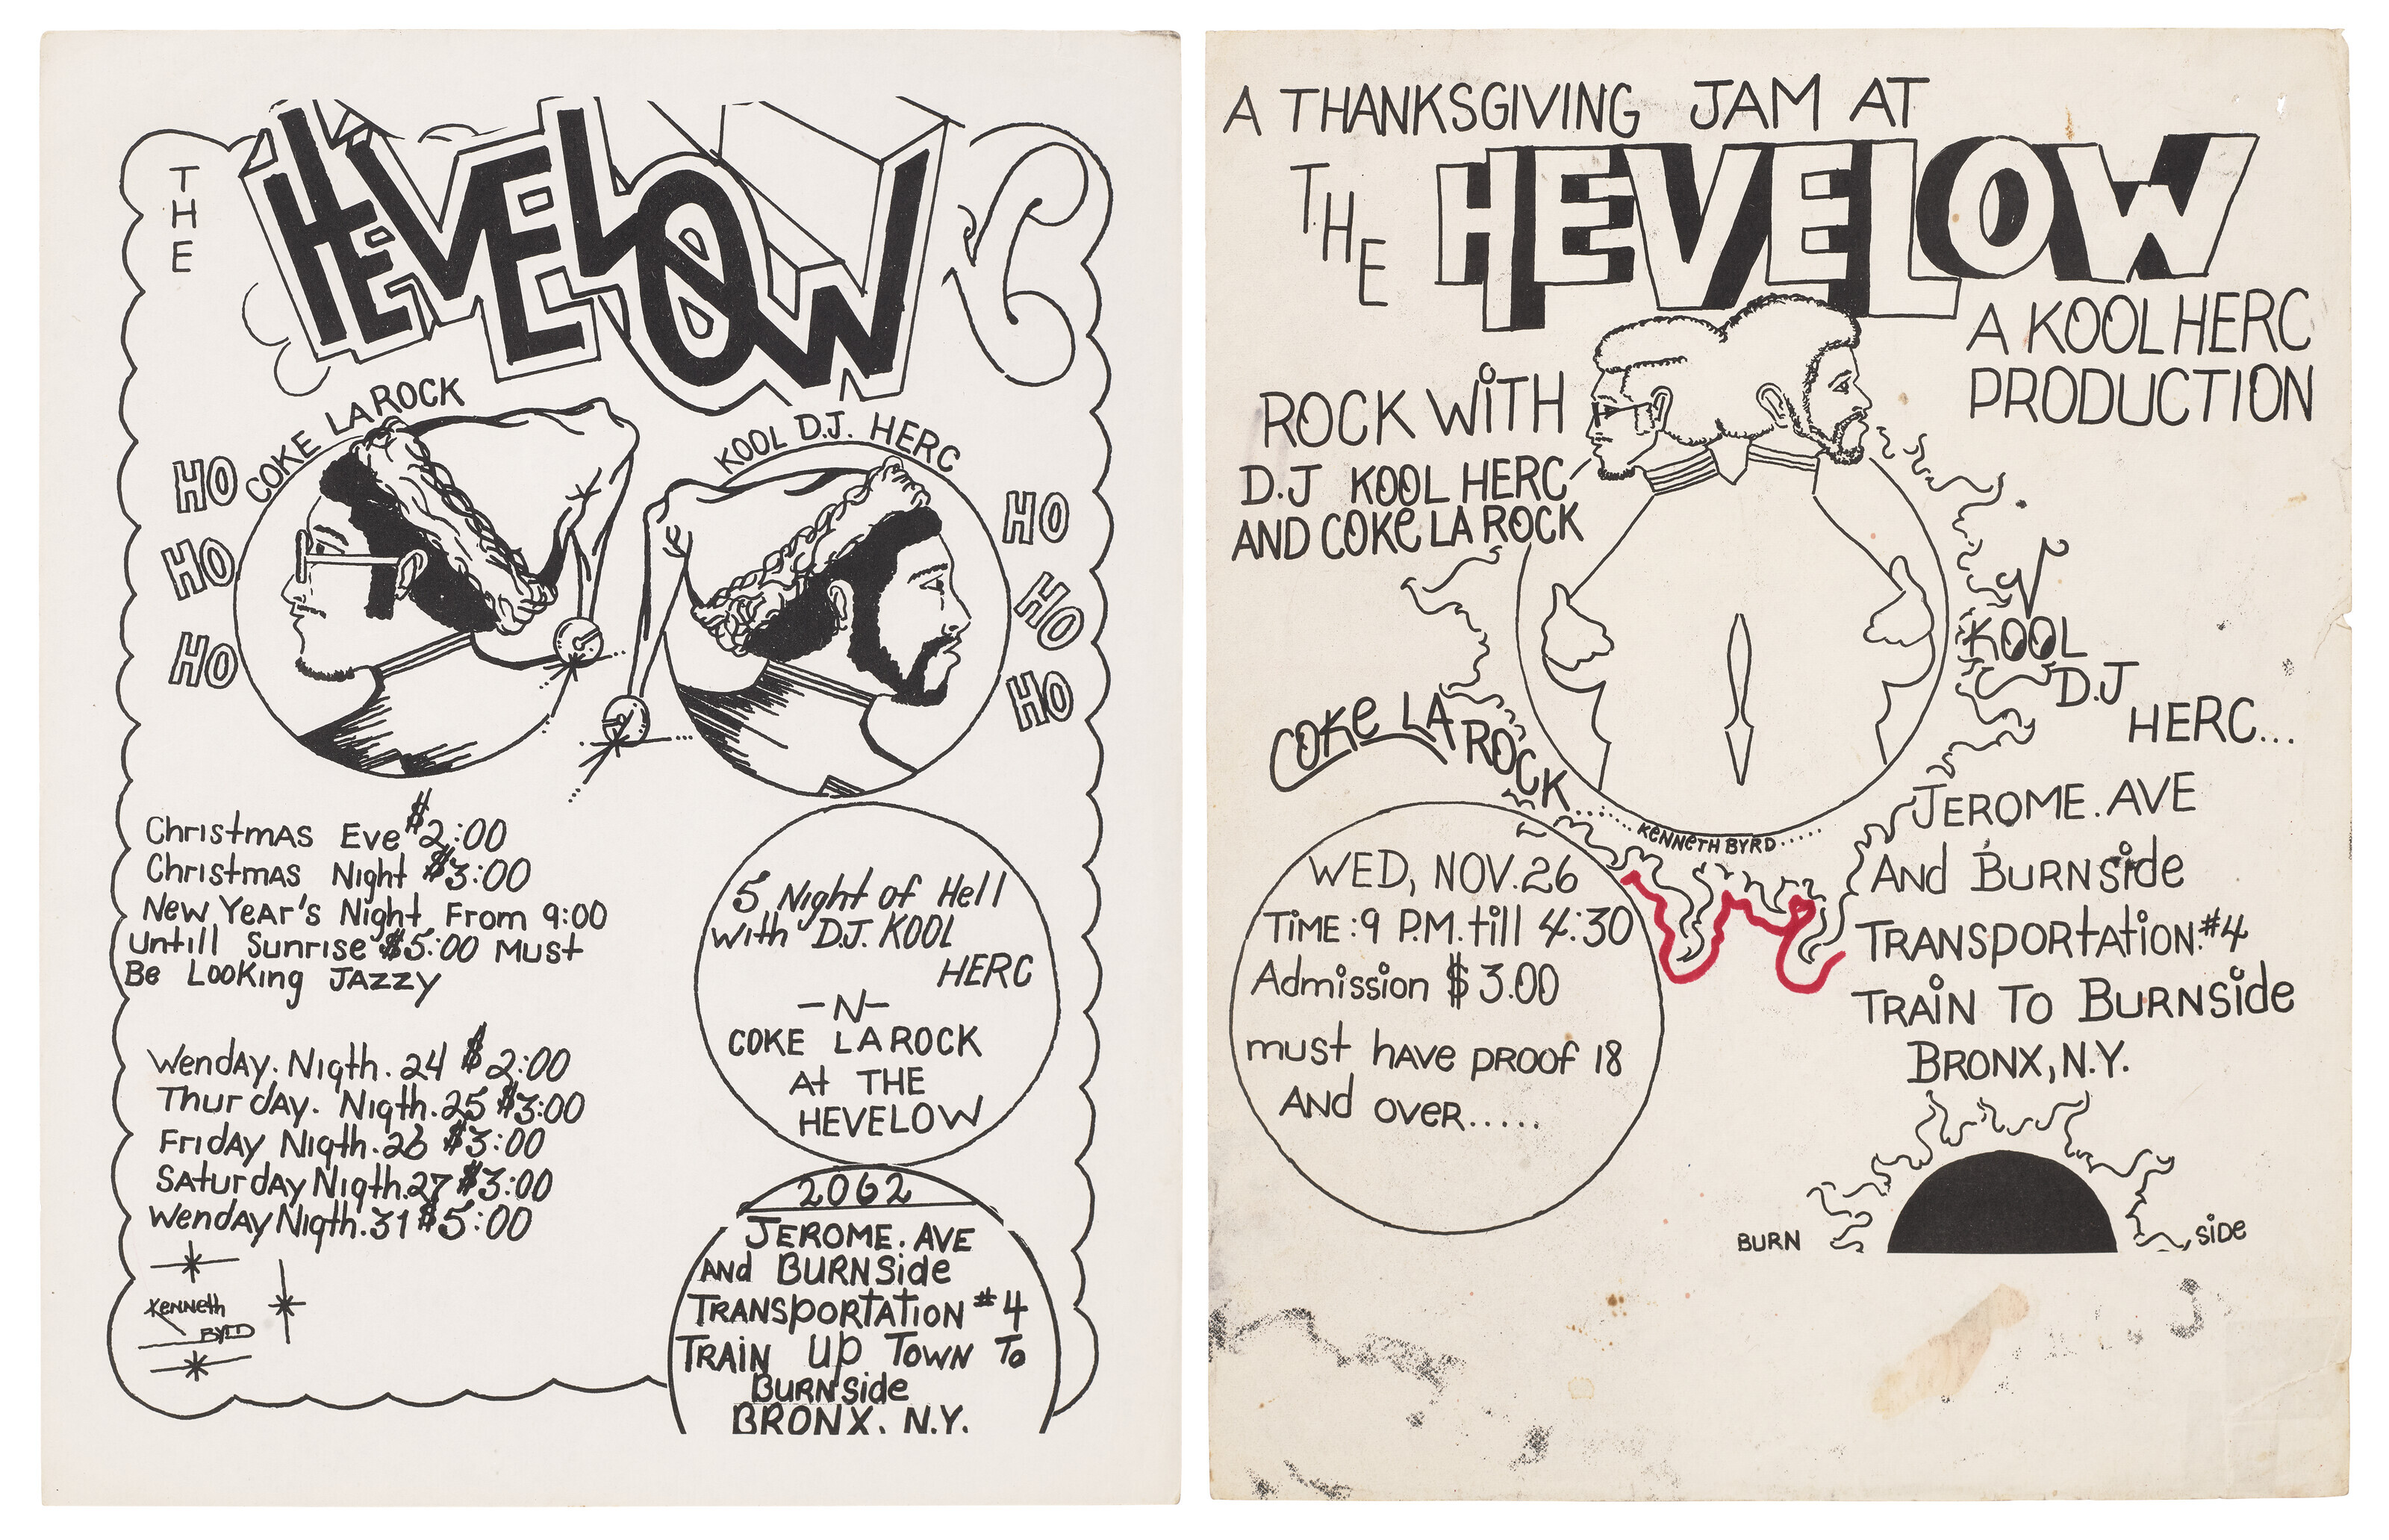 THE
HEVELOW
COKE LA ROCK
KOOL D.J. HERC
HO
HO
HO
HO
HO
HO
Christmas Eve $2:00
Christmas Night $3:00
New Year's Night From 9:00
untill Sunrise $5:00 Must
Be Looking JAZZY
Wenday. Nigth. 24 $2:00
Thurday. Nigth. 25 $3:00
Friday Nigth. 26 $3:00
Saturday Nigth. 27 $3:00
Wenday Nigth. 31 $5:00
Kenneth
BYRD
5 Night of Hell
with D.J. KOOL
HERC
-N-
COKE LA ROCK
At THE
HEVELOW
2062
JEROME. AVE
And BURNSide
TRANSpORTATION #4
TRAiN Up TOWN To
BURNSide
BRONX. N.Y.
A THANKSGIVING JAM AT
THE HEVELOW
A KOOL HERC
PRODUCTION
ROCK WiTH
D.J KOOL HERC
AND COKe LA ROCK
KOOL
D.J
HERC...
COKe LA ROCK.....
KeNNeTH BYRD.....
WED, NOV. 26
TiME: 9 P.M. till 4:30
Admission $3.00
must have proof 18
And over.....
JEROME. AVE
And BURNside
TRANSpORtAtiON. #4
TRAiN To BURNSide
BRONX, N.Y.
BURN
SiDe